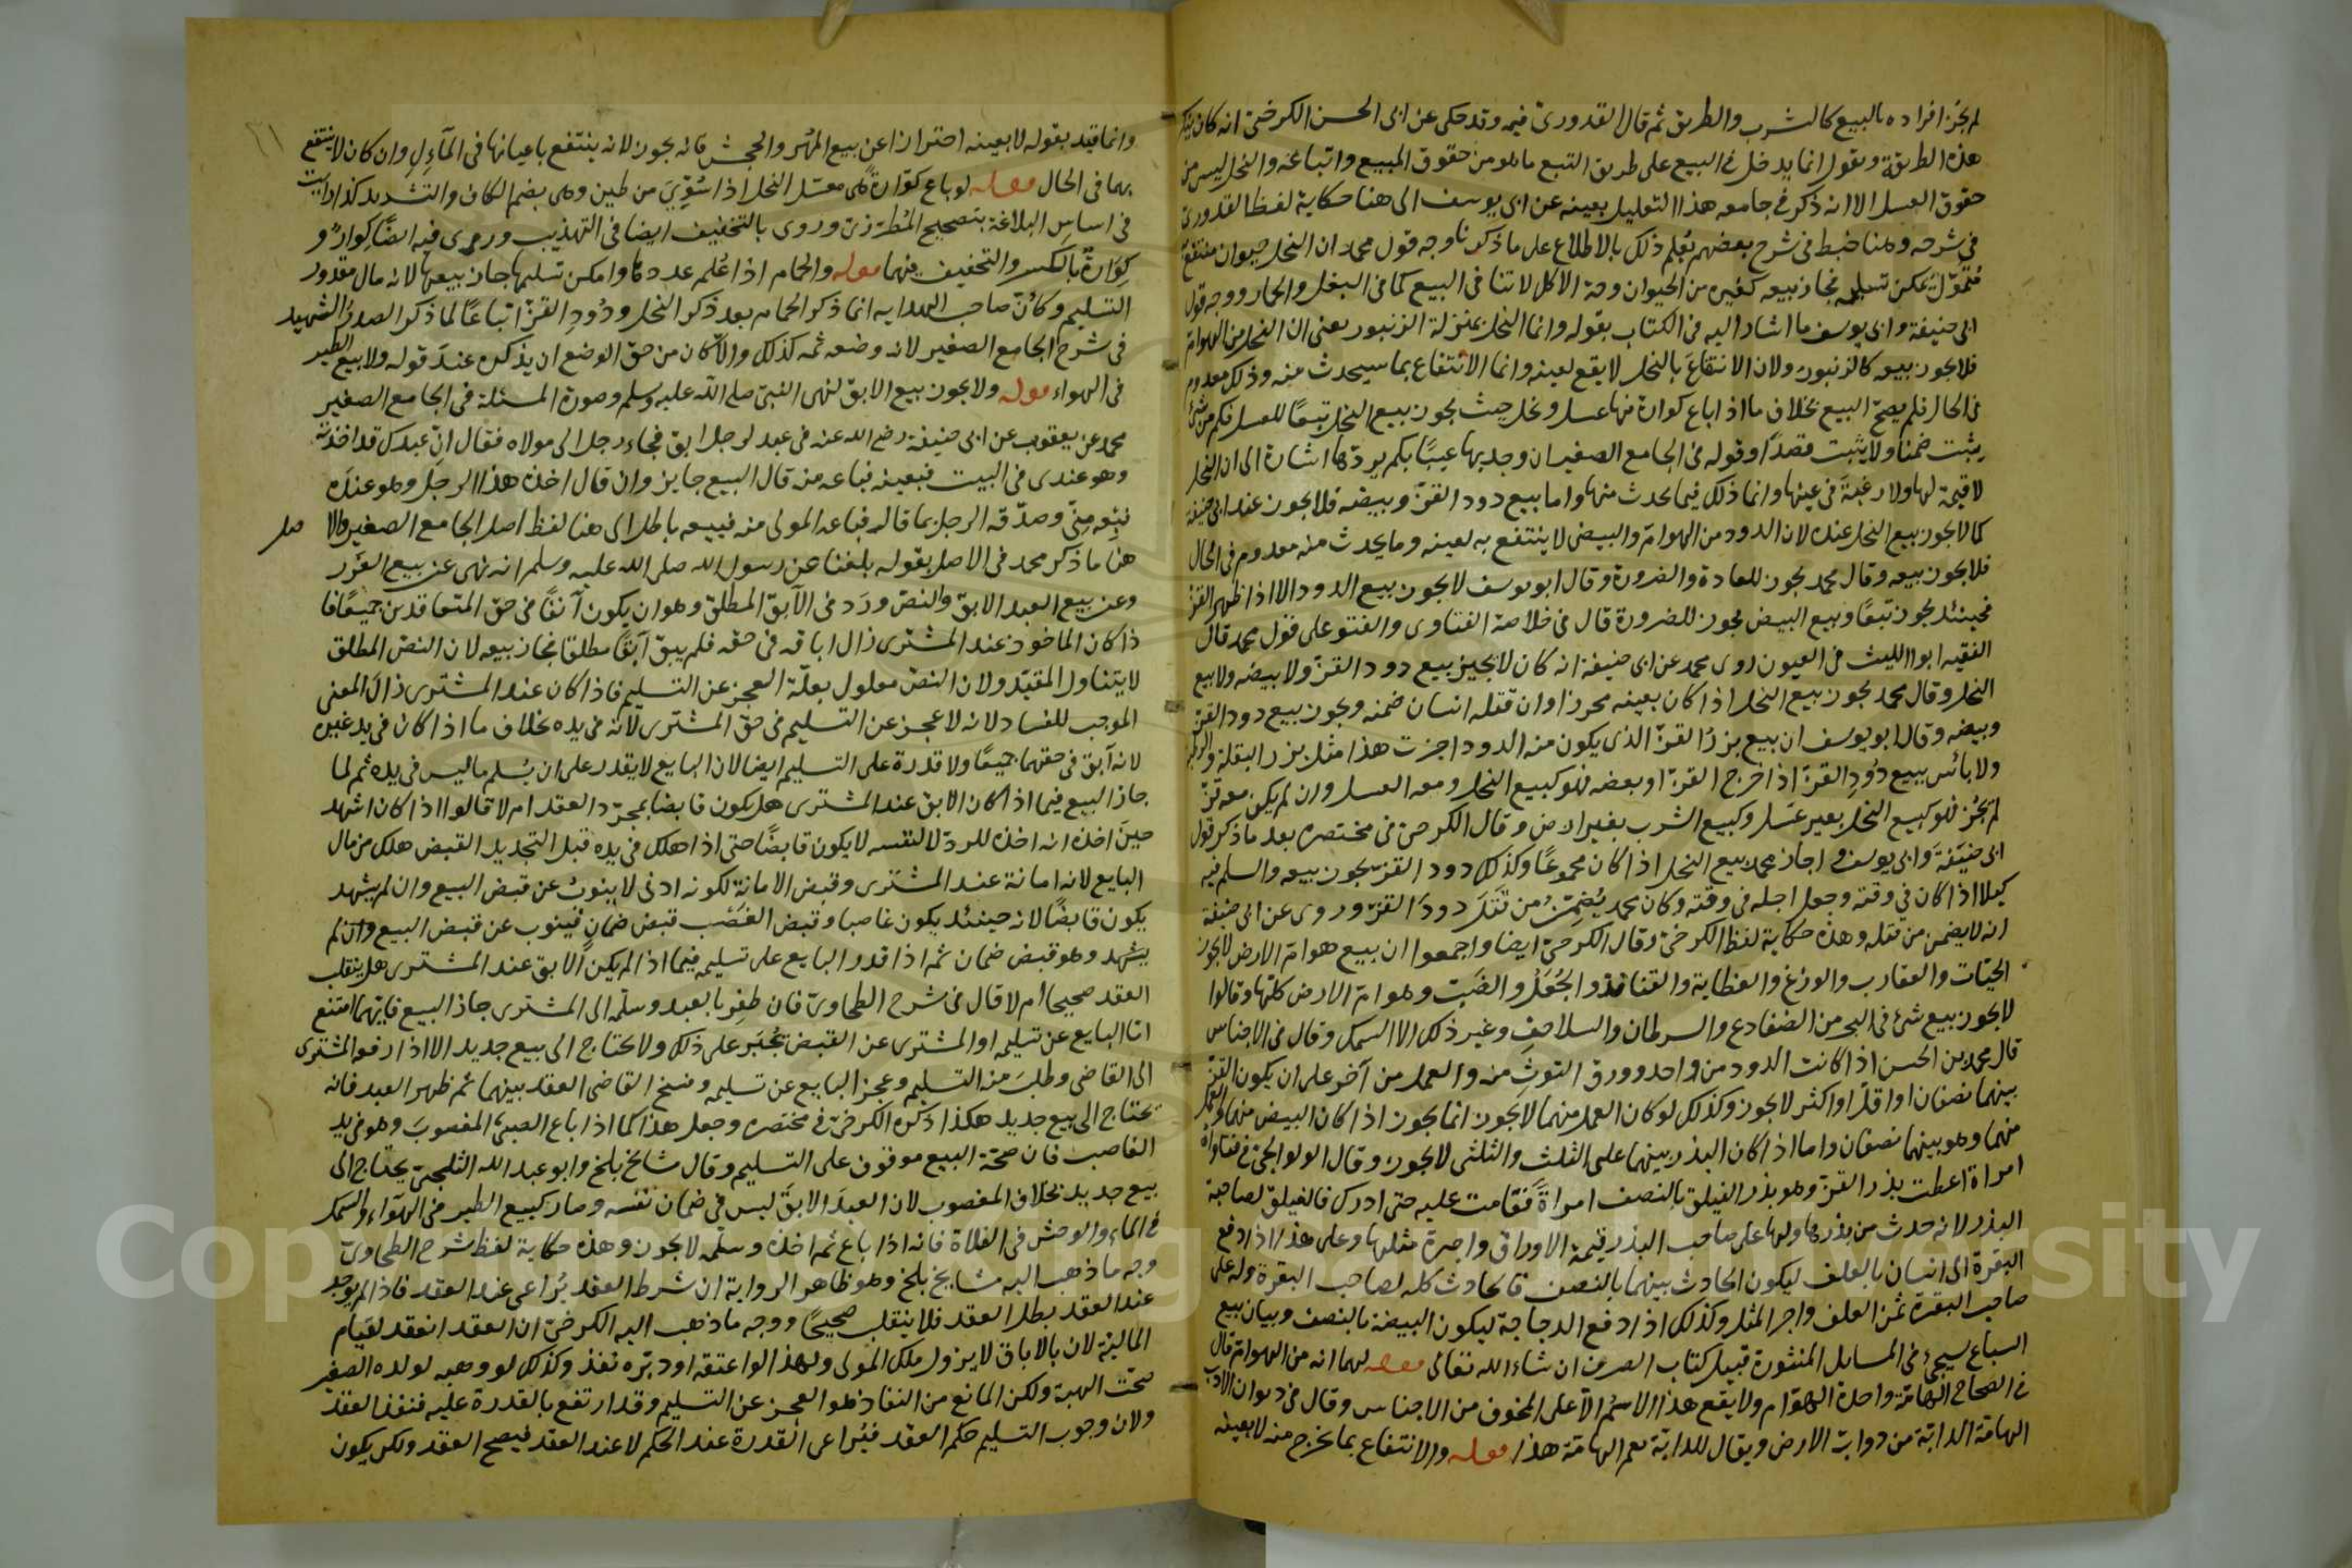 لم يجز افراده بالبيع كالشرب والطريق ثم قال القدوري فيه وقد حكى عن ابى الحسن الكرخى انه كان ينكر
هذه الطريقة ويقول انما يدخل في البيع على طريق التبع ما هو من حقوق المبيع واتباعه والنحل ليس من
حقوق العسل الا انه ذكر في جامعه هذا التعليل بعينه عن ابى يوسف الى هنا حكاية لفظ القدورى
في شرحه وهنا خبط في شرح بعضهم يُعلم ذلك بالاطلاع على ما ذكرنا وجه قول محمد ان النحل حيوان منتفع
مُتموّل يمكن تسليمه فجاز بيعه كغيره من الحيوان وحرمة الاكل لا تنافى البيع كما فى البغل والحمار ووجه قول
ابى حنيفة وابى يوسف ما اشار اليه فى الكتاب بقوله وانما النحل بمنزلة الزنبور يعنى ان النحل من الهوام
فلا يجوز بيعه كالزنبور ولان الانتفاع بالنحل لا يقع لعينه وانما الانتفاع بما سيحدث منه وذلك معدوم
فى الحال فلم يصح البيع بخلاف ما اذا باع كوارة فيها عسل ونحل حيث يجوز بيع النحل تبعًا للعسل فكم من شئ
يثبت ضمنًا ولا يثبت قصدًا وقوله في الجامع الصغير ان وجد بها عيبًا بكم يردّها اشارة الى ان النحل
لا قيمة لها ولا رغبة في عينها وانما ذلك فيما يحدث منها واما بيع دود القزّ وبيضه فلا يجوز عند ابى حنيفة
كما لا يجوز بيع النحل عنده لان الدود من الهوامّ والبيض لا ينتفع به لعينه وما يحدث منه معدوم في الحال
فلا يجوز بيعه وقال محمد يجوز للعادة والضرورة وقال ابو يوسف لا يجوز بيع الدود الا اذا ظهر القز
فحينئذ يجوز تبعًا وبيع البيض يجوز للضرورة قال في خلاصة الفتاوى والفتو على قول محمد قال
الفقيه ابو الليث فى العيون روى محمد عن ابى حنيفة انه كان لا يجيز بيع دود القزّ ولا بيضه ولا بيع
النحل وقال محمد يجوز بيع النحل اذا كان بعينه محرزا وان قتله انسان ضمنه ويجوز بيع دود القز
وبيضه وقال ابو يوسف ان بيع بزرُ القزّ الذى يكون منه الدود اجزت هذا مثل بزر البقلة
ولا بائس ببيع دُودِ القزّ اذا خرج القزّ او بعضه فهو كبيع النحل ومعه العسل وان لم يكن معه قز
لم يجُز فهو كبيع النحل بغير عسل وكبيع الشرب بغير ارض وقال الكرخىّ فى مختصره بعد ما ذكر قول
ابى حنيفة وابى يوسف واجاز محمد بيع النحل اذا كان مجموعًا وكذلك دود القزّ يجوز بيعه والسلم فيه
كيلا اذا كان في وقته وجعل اجله في وقته وكان محمد يُضمِّنُ من قتل دودَ القزّ وروى عن ابى حنيفة
انه لا يضمن من قتله وهذه حكاية لفظ الكرخىّ وقال الكرخىّ ايضا واجمعوا ان بيع هوامّ الارض لا يجوز
الحيّات والعقارب والوزغ والعظاية والقنافذ والجُعَلُ والضَبّ وهوامّ الارض كلّها وقالوا
لا يجوز بيع شئ في البحر من الضفادع والسرطان والسلاحف وغير ذلك الا السمك وقال فى الاجناس
قال محمد بن الحسن اذا كانت الدود من واحد وورق التوث منه والعمل من آخر على ان يكون القز
بينهما نصفان او اقلّ او اكثر لا يجوز وكذلك لو كان العمل منهما لا يجوز انما يجوز اذا كان البيض منهما والعمل
منهما وهو بينهما نصفان واما اذا كان البذر بينهما على الثلث والثلثى لا يجوز وقال الولوالجىّ في فتاواه
امراة اعطت بذر القزّ وهو بذر الفيلق بالنصف امراةً فقامت عليه حتى ادرك فالفيلق لصاحبة
البذر لانه حدث من بذرها ولها على صاحب البذر قيمة الاوراق واجرة مثلها وعلى هذا اذا دفع
البقرة الى انسان بالعلف ليكون الحادث بينهما بالنصف فالحادث كله لصاحب البقرة وله على
صاحب البقرة ثمن العلف واجر المثل وكذلك اذا دفع الدجاجة ليكون البيضة بالنصف وبيان بيع
السباع سيجئ فى المسايل المنثورة قبيل كتاب الصرف ان شاء الله تعالى قوله لهما انه من الهوامّ قال
في الصحاح الهامّة واحدة الهوّام ولا يقع هذا الاسمُ الّا على المخوف من الاجناس وقال في ديوان الادب
الهامّة الدابّة من دوابّ الارض ويقال للدابّة نعم الهامّة هذا قوله والانتفاع بما يخرج منه لا بعينه
وانما قيد بقوله لا بعينه احترازا عن بيع المُهر والجحش فانه يجوز لانه ينتفع باعيانها فى المآءلِ وان كان لا ينتفع
بهما فى الحال قوله لو باع كوّارةً هى معسل النحل اذا سُوِّىَ من طين وهى بضم الكاف والتشديد كذا رايت
فى اساسِ البلاغة بتصحيح المُطرّزىّ وروى بالتخفيف ايضا فى التهذيب وروى فيه ايضًا كوارٌ و
كِوَارةٌ بالكسر والتخفيف فيهما قوله والحمام اذا عُلم عددها وامكن تسليمها جاز بيعها لانه مال مقدور
التسليم وكانّ صاحب الهدايه انما ذكر الحمام بعد ذكر النحل ودُودِ القزّ اتباعًا لما ذكر الصدرُ الشهيد
فى شرح الجامع الصغير لانه وضعه ثمه كذلك والّا كان من حقّ الوضع ان يذكره عندَ قوله ولا بيع الطير
فى الهواء قوله ولا يجوز بيع الابق لنهى النبىّ صلى الله عليه وسلم وصورة المسئلة فى الجامع الصغير
محمد عن يعقوب عن ابى حنيفة رضى الله عنه فى عبد لرجل ابق فجاء رجل الى مولاه فقال انّ عبدك قد اخذته
وهو عندى فى البيت فبعينه فباعه منه قال البيع جايز وان قال اخذه هذا الرجل وهو عنده
فبِعه مِنّى وصدّقه الرجل بما قال فباعه المولى منه فبيعه باطل الى هنا لفظ اصل الجامع الصغير والا صل
هنا ما ذكر محمد فى الاصل بقوله بلغنا عن رسول الله صلى الله عليه وسلم انه نهى عن بيع الغَرر
وعن بيع العبد الابق والنصّ ورَد فى الآبق المطلق وهو ان يكون آبقًا فى حقّ المتعاقدين جميعًا فا
ذا كان الماخوذ عند المشترى زال اباقه فى حقه فلم يبق آبقًا مطلقا فجاز بيعه لان النصّ المطلق
لا يتناول المقيّد ولان النصّ معلول بعلّة العجز عن التسليم فاذا كان عند المشترى زال المعنى
الموجب للفساد لانه لا عجز عن التسليم فى حقّ المشترى لانه فى يده بخلاف ما اذا كان فى يد غيره
لانه آبق فى حقهما جميعًا ولا قدرة على التسليم ايضا لان البايع لا يقدر على ان يسلم ما ليس فى يده ثم لما
جاز البيع فيما اذا كان الابق عند المشترى هل يكون قابضا بمجرّد العقد ام لا قالوا اذا كان اشهد
حينَ اخذه انه اخذه للردّ لا لنفسه لا يكون قابضًا حتى اذا هلك فى يده قبل التجديد القبض هلك من مال
البايع لانه امانة عند المشترى وقبض الامانة لكونه ادنى لا ينوبُ عن قبض البيع وان لم يشهد
يكون قابضًا لانه حينئذ يكون غاصبا وقبض الغَصْب قبض ضمانٍ فينوب عن قبض البيع وان لم
يشهد وهو قبض ضمان ثمه اذا قدر البايع على تسليمه فيما اذا لم يكن الابق عند المشترى هل ينقلب
العقد صحيحا ام لا قال فى شرح الطحاوىّ فان ظفِر بالعبد وسلّمه الى المشترى جاز البيع فايّهما امتنع
امّا البايع عن تسليمه او المشترى عن القبض يُجبَر على ذلك ولا يحتاج الى بيع جديد الا اذا رفع المشترى
الى القاضى وطلبَ منه التسليم وعجز البايع عن تسليمه وفسخ القاضى العقد بينهما ثم ظهر العبد فانه
يحتاج الى بيع جديد هكذا ذكره الكرخىّ في مختصره وجعل هذا كما اذا باع الصبىُّ المغصوبَ وهو فى يد
الغاصب فان صحّة البيع موقوف على التسليم وقال مشايخ بلخ وابو عبد الله الثلجىّ يحتاج الى
بيع جديد بخلاف المغصوب لان العبدَ الابقَ ليس فى ضمان نفسه وصار كبيع الطير فى الهوآء والسمك
فى الماء والوحش فى الفلاة فانه اذا باع ثم اخذه وسلّمه لا يجوز وهذه حكاية لفظ شرح الطحاوىّ
وجه ما ذهب اليه مشايخ بلخ وهو ظاهر الرواية ان شرط العقد يُراعى عند العقد فاذا لم يوجد
عند العقد بطل العقد فلا ينقلب صحيحًا ووجه ما ذهب اليه الكرخىّ ان العقد انعقد لقيام
المالية لان بالاباق لا يزول ملك المولى ولهذا لو اعتقه او دبّره نفذ وكذلك لو وهبه لولده الصغير
صحّت الهبة ولكن المانع من النفاذ هو العجز عن التسليم وقد ارتفع بالقدرة عليه فنفذ العقد
ولان وجوب التسليم حكم العقد فيُراعى القدرة عند الحكم لا عند العقد فيصح العقد ولكن يكون